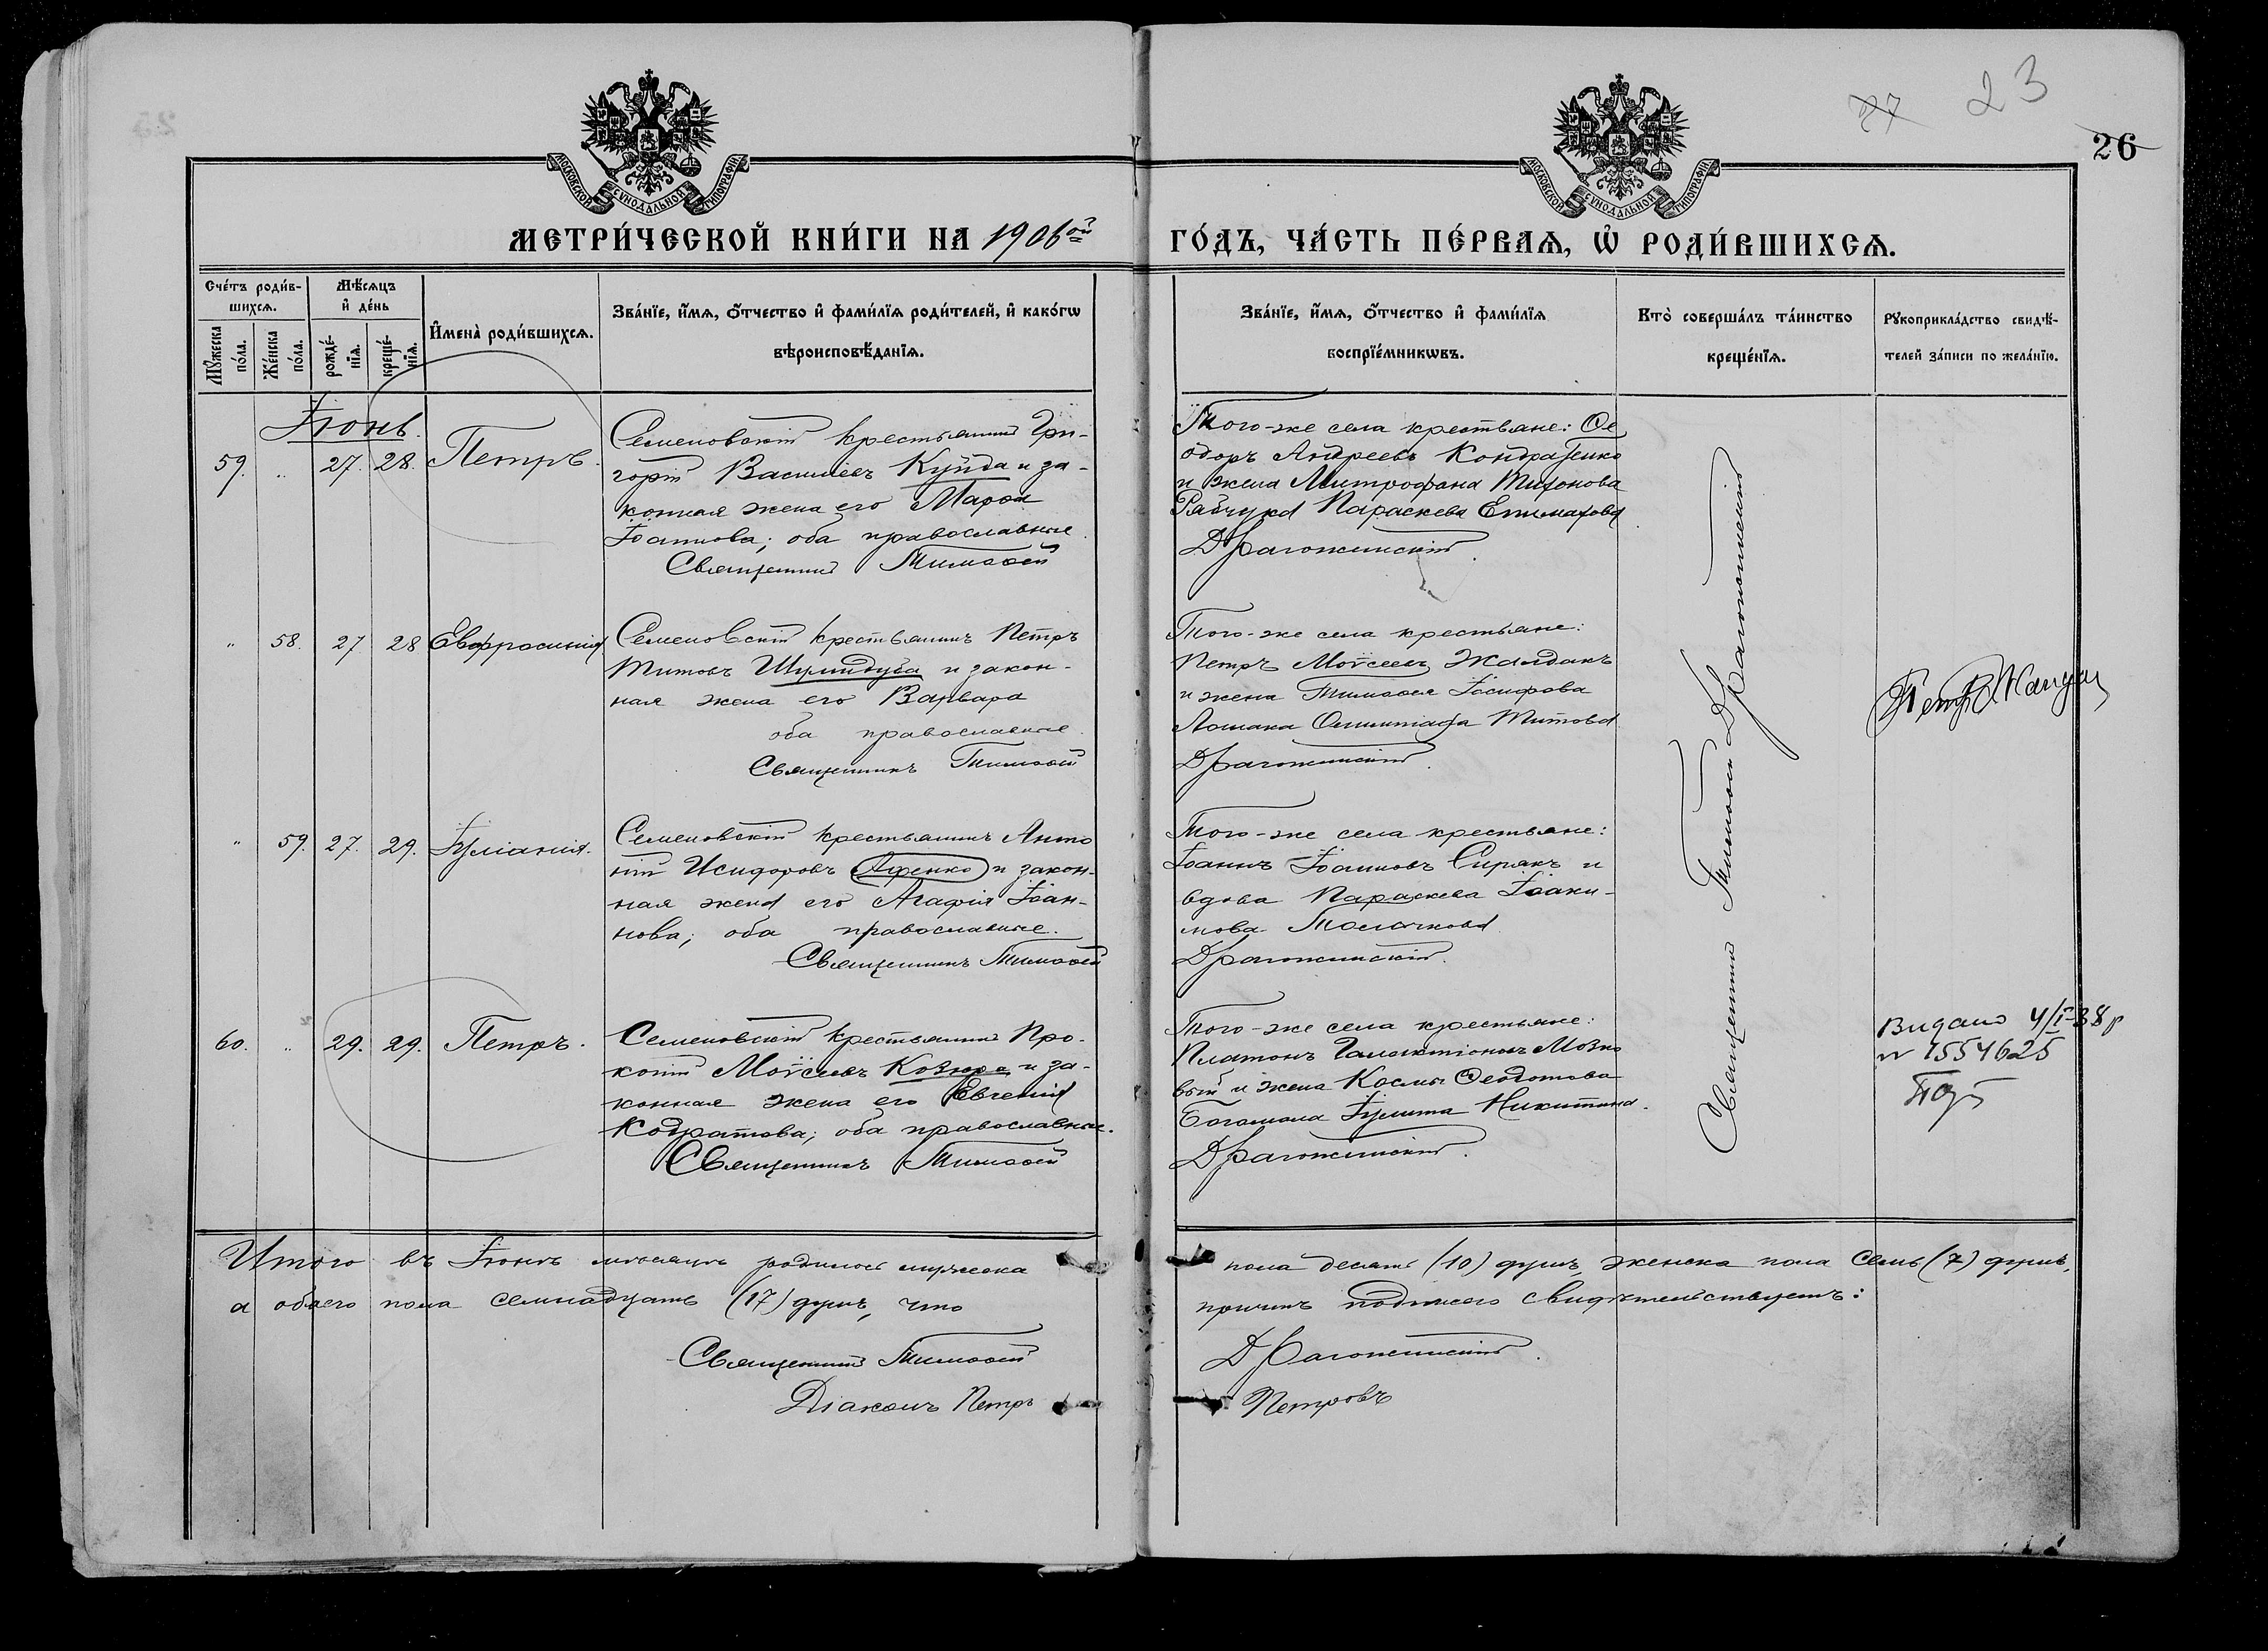 23
27
26
МОСКОВСКОЙ СѴНОДАЛЬНОЙ ТИПОГРАФІИ
МОСКОВСКОЙ СѴНОДАЛЬНОЙ ТИПОГРАФІИ
МЕТРИ́ЧЕСКОЙ КНИ́ГИ НА 1906ой
ГО́ДЪ, ЧА́СТЬ ПЕ́РВАѦ, Ѡ҆ РОДИ́ВШИХСѦ.
Сче́тъ роди́в-
шихсѧ.
Мѣ́сѧцъ
и҆ де́нь
Мꙋ́жеска
по́ла.
Же́нска
по́ла.
рожде́-
нїѧ.
креще́-
нїѧ.
И҆мена̀ роди́вшихсѧ.
Зва́нїе, и҆́мѧ, ѻ҆́тчество и҆ фами́лїѧ роди́телей, и҆ како́гѡ
вѣроисповѣ́данїѧ.
Зва́нїе, и҆́мѧ, ѻ҆́тчество и҆ фами́лїѧ
воспрїе́мникѡвъ.
Кто̀ соверша́лъ та́инство
креще́нїѧ.
Рꙋкоприкла́дство свидѣ́-
телей за́писи по жела́нїю.
Іюнь.
59. " 27. 28. Петръ.
Семеновскій крестьянинъ Гри-
горій Василіевъ Куйда и за-
конная жена его Марѳа
Іоаннова; оба православные.
Священникъ Тимоѳей
Того-же села крестьяне: Ѳе
одоръ Андреевъ Кондратенко
и жена Митрофана Тихонова
Рябчука Параскева Епимахова
Драгожинскій.
" 58. 27 28 Евфросинія
Семеновскій крестьянинъ Петръ
Титовъ Шулидуба и закон-
ная жена его Варвара
оба православные.
Священникъ Тимоѳей
Того-же села крестьяне:
Петръ Моѵсеевъ Жалдакъ
и жена Тимоѳея Іосифова
Ломака Титова
Драгожинскій.
Петръ
" 59. 27. 29. Іуліанія.
Семеновскій крестьянинъ Анто
ній Исидоровъ Яценко и закон-
ная жена его Агафія Іоан-
нова; оба православные.
Священникъ Тимоѳей
Того-же села крестьяне:
Іоаннъ Іоанновъ Сирякъ и
вдова Параскева Іоаки-
мова
Драгожинскій.
60. " 29. 29. Петръ.
Семеновскій крестьянинъ Про-
копій Моѵсеевъ Козюра и за-
конная жена его Евгенія
Кодратова; оба православные.
Священникъ Тимоѳей
Того-же села крестьяне:
Платонъ Галактіоновъ Мозго
вый и жена Космы Ѳеодотова
Богомола Іулита Никитина.
Драгожинскій.
Видано 4/I-38 р
№ 1554625
Священникъ Тимоѳей Драгожинскій
Итого въ Іюнѣ мѣсяцѣ родилось мужеска
пола десять (10) душъ, женска пола семь (7) душъ,
а обоего пола семнадцать (17) душъ, что
причтъ подписью свидѣтельствуетъ:
Священникъ Тимоѳей
Драгожинскій.
Діаконъ Петръ
Петровъ